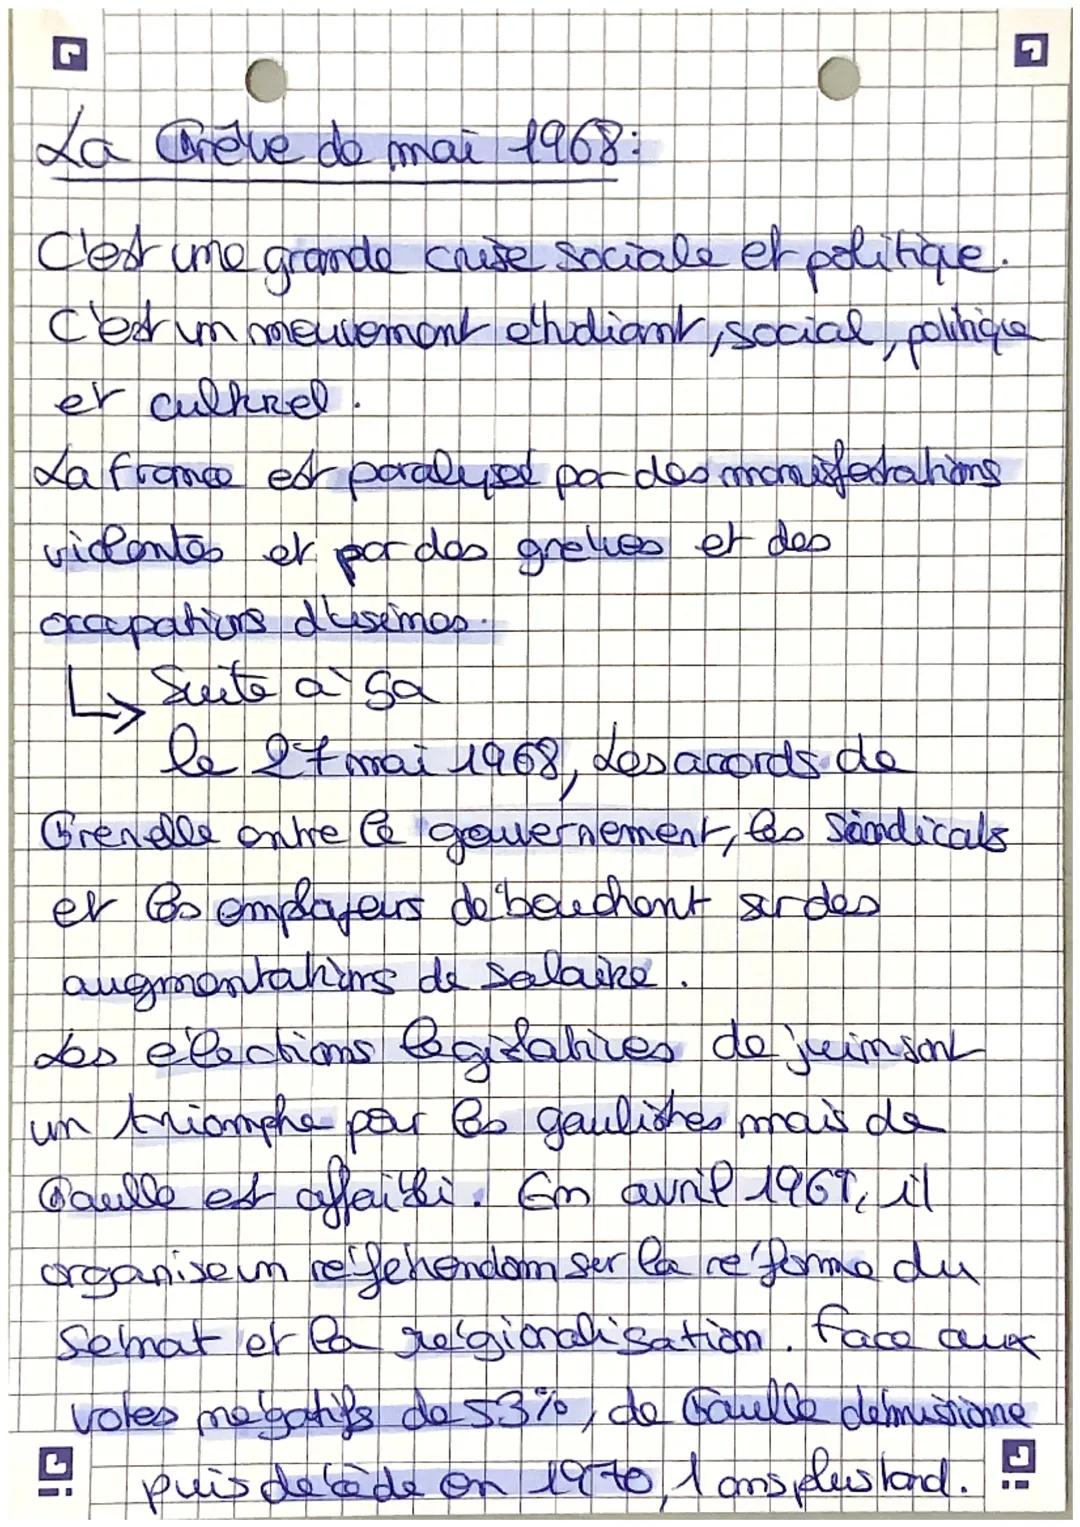 La Grève de mai 1968:
C'est une grande crise sociale et politique.
C'est un mouvement etudiant, social, politique
et culturel.
La france est paralysed par des manisfestations
violentes et par des greves et des
occupations d'usines.
↳ Suite a' sa
le 27 mai 1968, Les acords de
Grenelle entre le gouvernement, les sindicals
et les employeurs débouchent sur des
augmentations de salaire.
Les élections legislatives de juin sont
un triomphe pour les gaulistes mais de
Gaulle est affaibli. En avril 1969, il
organise un réfehendom sur la réforme du
Sénat et la régionalisation. face aux
votes négatifs de 53%, de Gaulle démissione
puis décède en 1970, 1 ans plus tard.